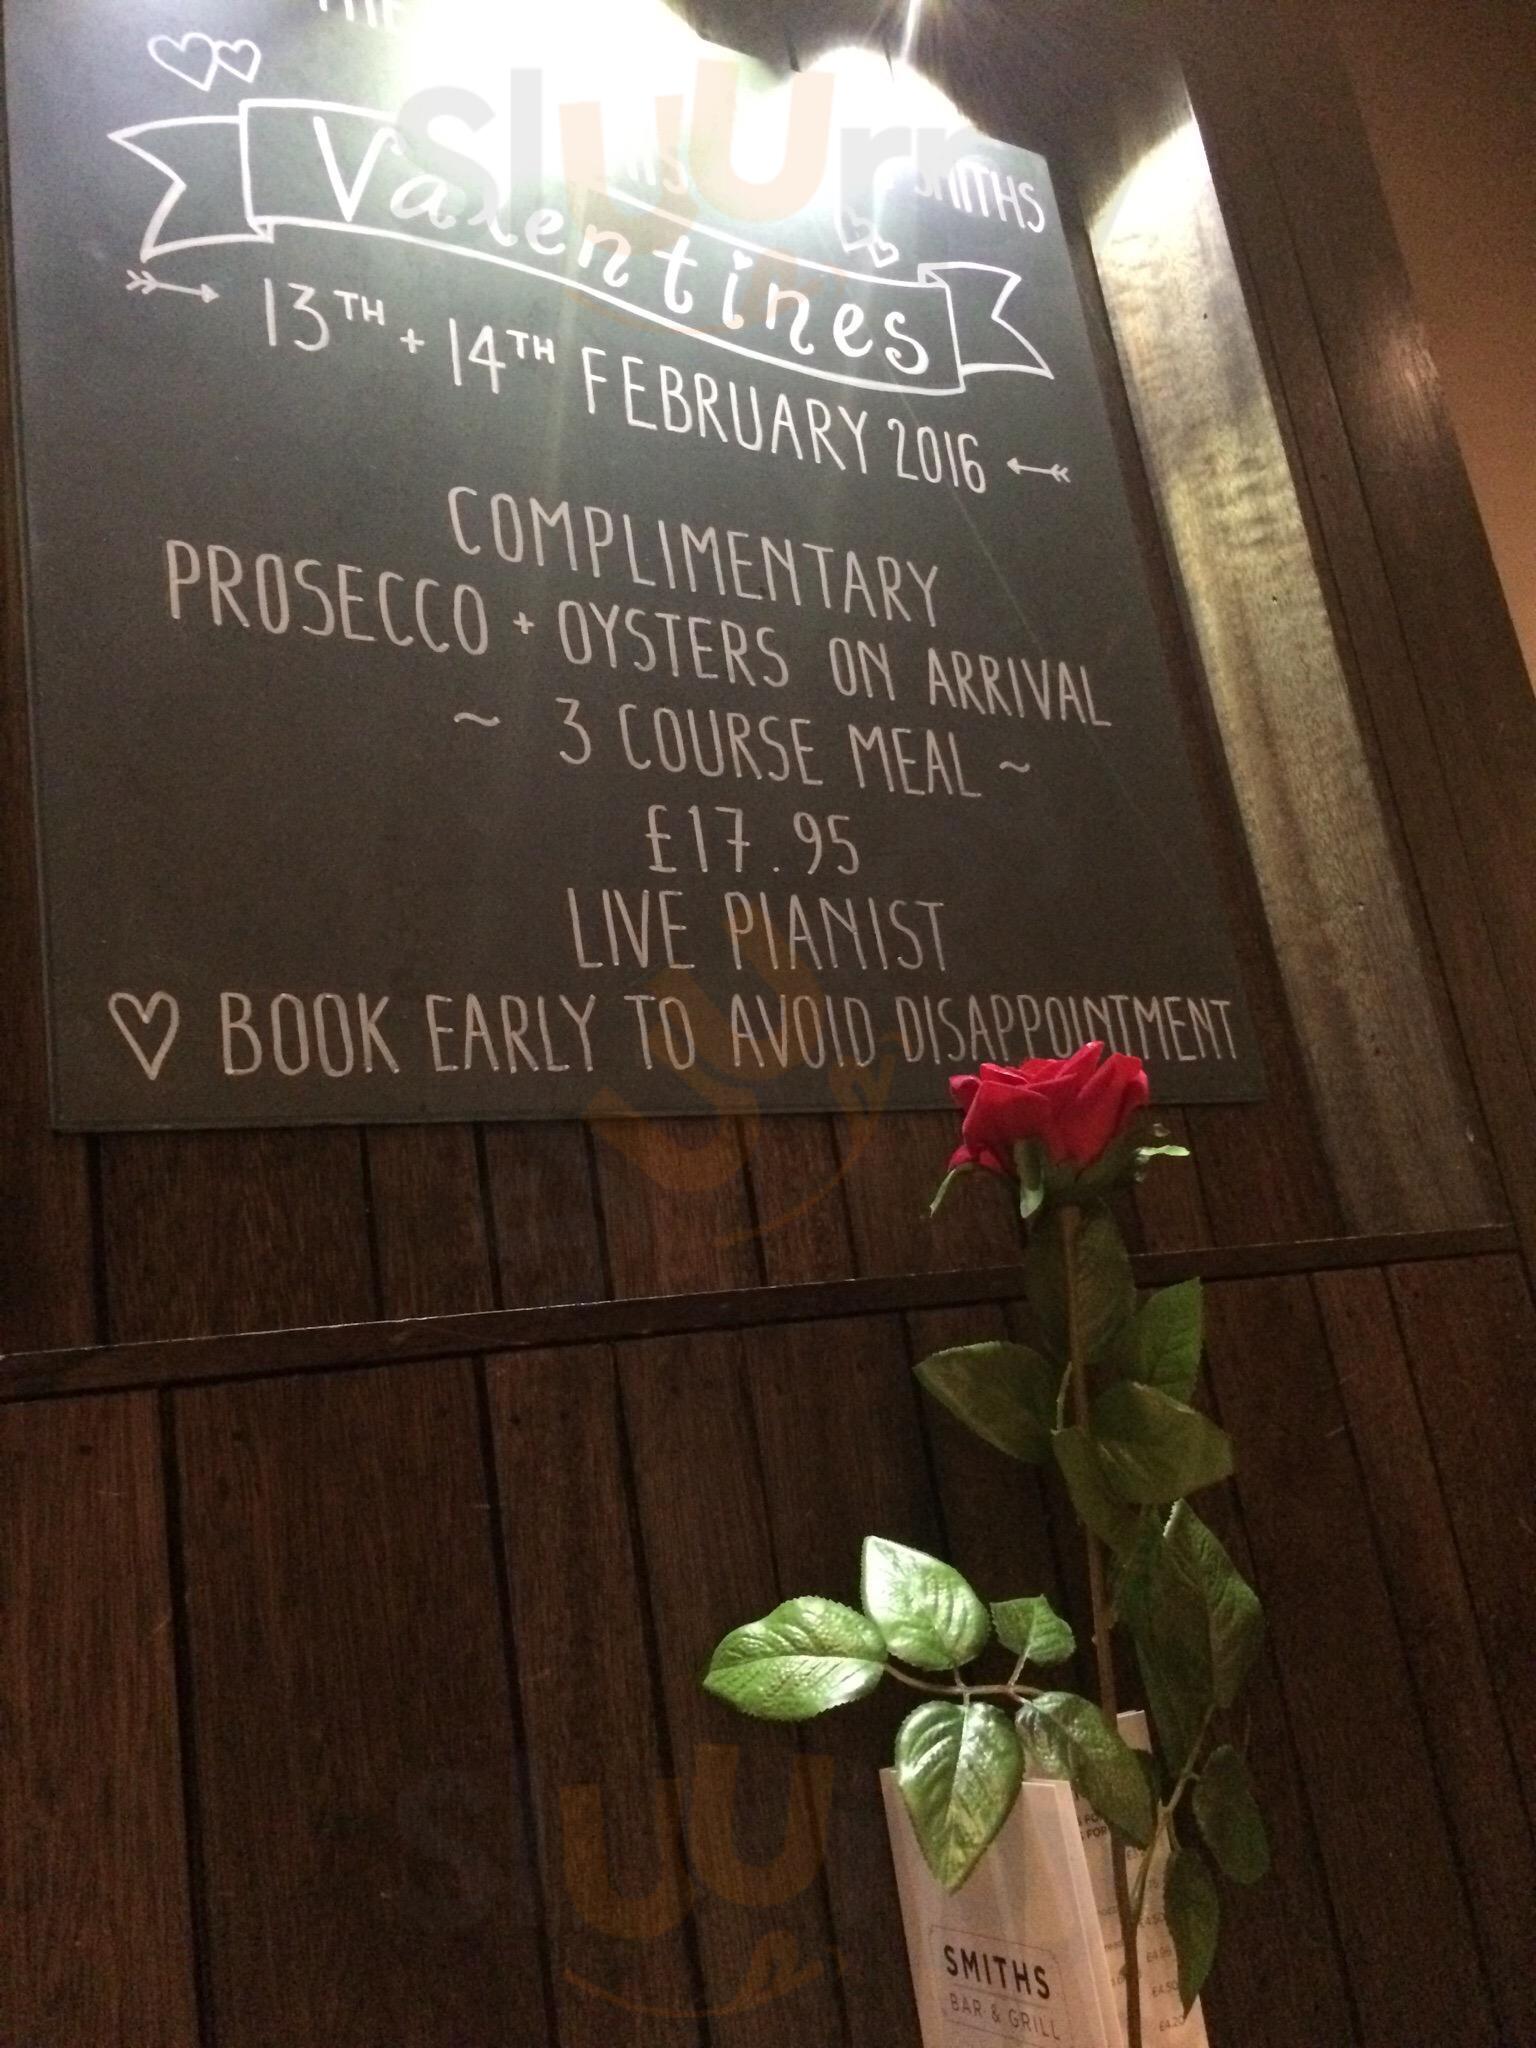 SMITHS
Valentines
13TH + 14TH FEBRUARY 2016
COMPLIMENTARY
PROSECCO + OYSTERS ON ARRIVAL
~ 3 COURSE MEAL ~
£17.95
LIVE PIANIST
♡ BOOK EARLY TO AVOID DISAPPOINTMENT
SMITHS
BAR & GRILL
£4.50
£4.20
Sluurpy